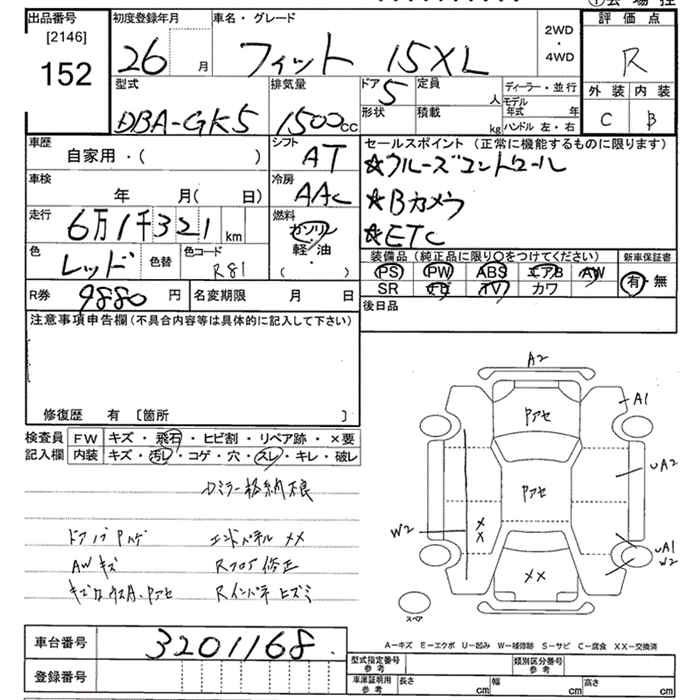 ①会場控
出品番号
[2146]
152
初度登録年月
26 月
車名・グレード
フィット 15XL
2WD
・
4WD
評価点
R
外装 内装
C B
型式
DBA-GK5
排気量
1500cc
ドア 5
形状
定員 人
積載 kg
ディーラー・並行
モデル年式 年
ハンドル 左・右
車歴
自家用・( )
シフト
AT
車検
年 月( 日)
冷房
AAC
走行
6万1千321 km
燃料
ガソリン
軽・油
( )
色
レッド
色替
色コード
R81
セールスポイント(正常に機能するものに限ります)
☆クルーズコントロール
☆Bカメラ
☆ETC
装備品(純正品に限り○をつけてください)
PS PW ABS エアB AW
SR ナビ TV カワ
新車保証書
有・無
R券 9880 円
名変期限 月 日
後日品
注意事項申告欄(不具合内容等は具体的に記入して下さい)
修復歴 有 [箇所 ]
検査員
記入欄
FW キズ・飛石・ヒビ割・リペア跡・×要
内装 キズ・汚レ・コゲ・穴・スレ・キレ・破レ
ミラー格納不良
ドア Pハゲ
エンドパネル XX
AWキズ
Rフロア修正
キズ 小凹A、Pアセ
Rインパネ ヒズミ
A2
A1
Pアセ
UA2
Pアセ
W2
XX
UA1
W2
XX
スペア
A-キズ E-エクボ U-凹み W-補修跡 S-サビ C-腐食 XX-交換済
車台番号
3201168
登録番号
型式指定番号
参考
類別区分番号
参考
車庫証明用
参考
長さ cm
幅 cm
高さ cm